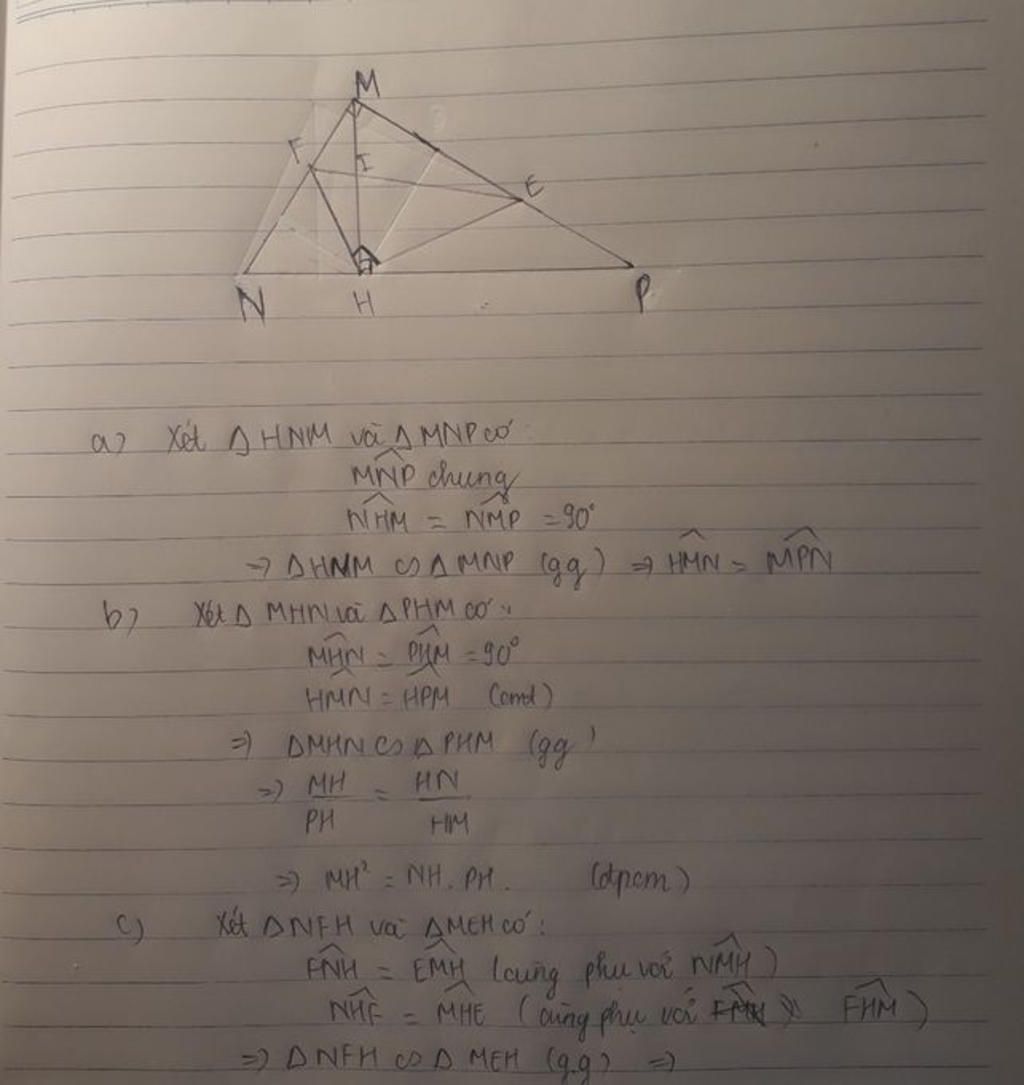 M
F
I
E
N
H
P
a) Xét ΔHNM và ΔMNP có:
∠MNP chung
∠NHM = ∠NMP = 90°
=> ΔHNM ∽ ΔMNP (gg) => ∠HMN = ∠MPN
b) Xét Δ MHN và ΔPHM có:
∠MHN = ∠PHM = 90°
∠HMN = ∠HPM (cmt)
=> ΔMHN ∽ Δ PHM (gg)
=> MH/PH = HN/HM
=> MH² = NH. PH. (đpcm)
c) Xét ΔNFH và ΔMEH có:
∠FNH = ∠EMH (cùng phụ với ∠NMH)
∠NHF = ∠MHE (cùng phụ với ∠FHM)
=> ΔNFH ∽ Δ MEH (g.g) =>